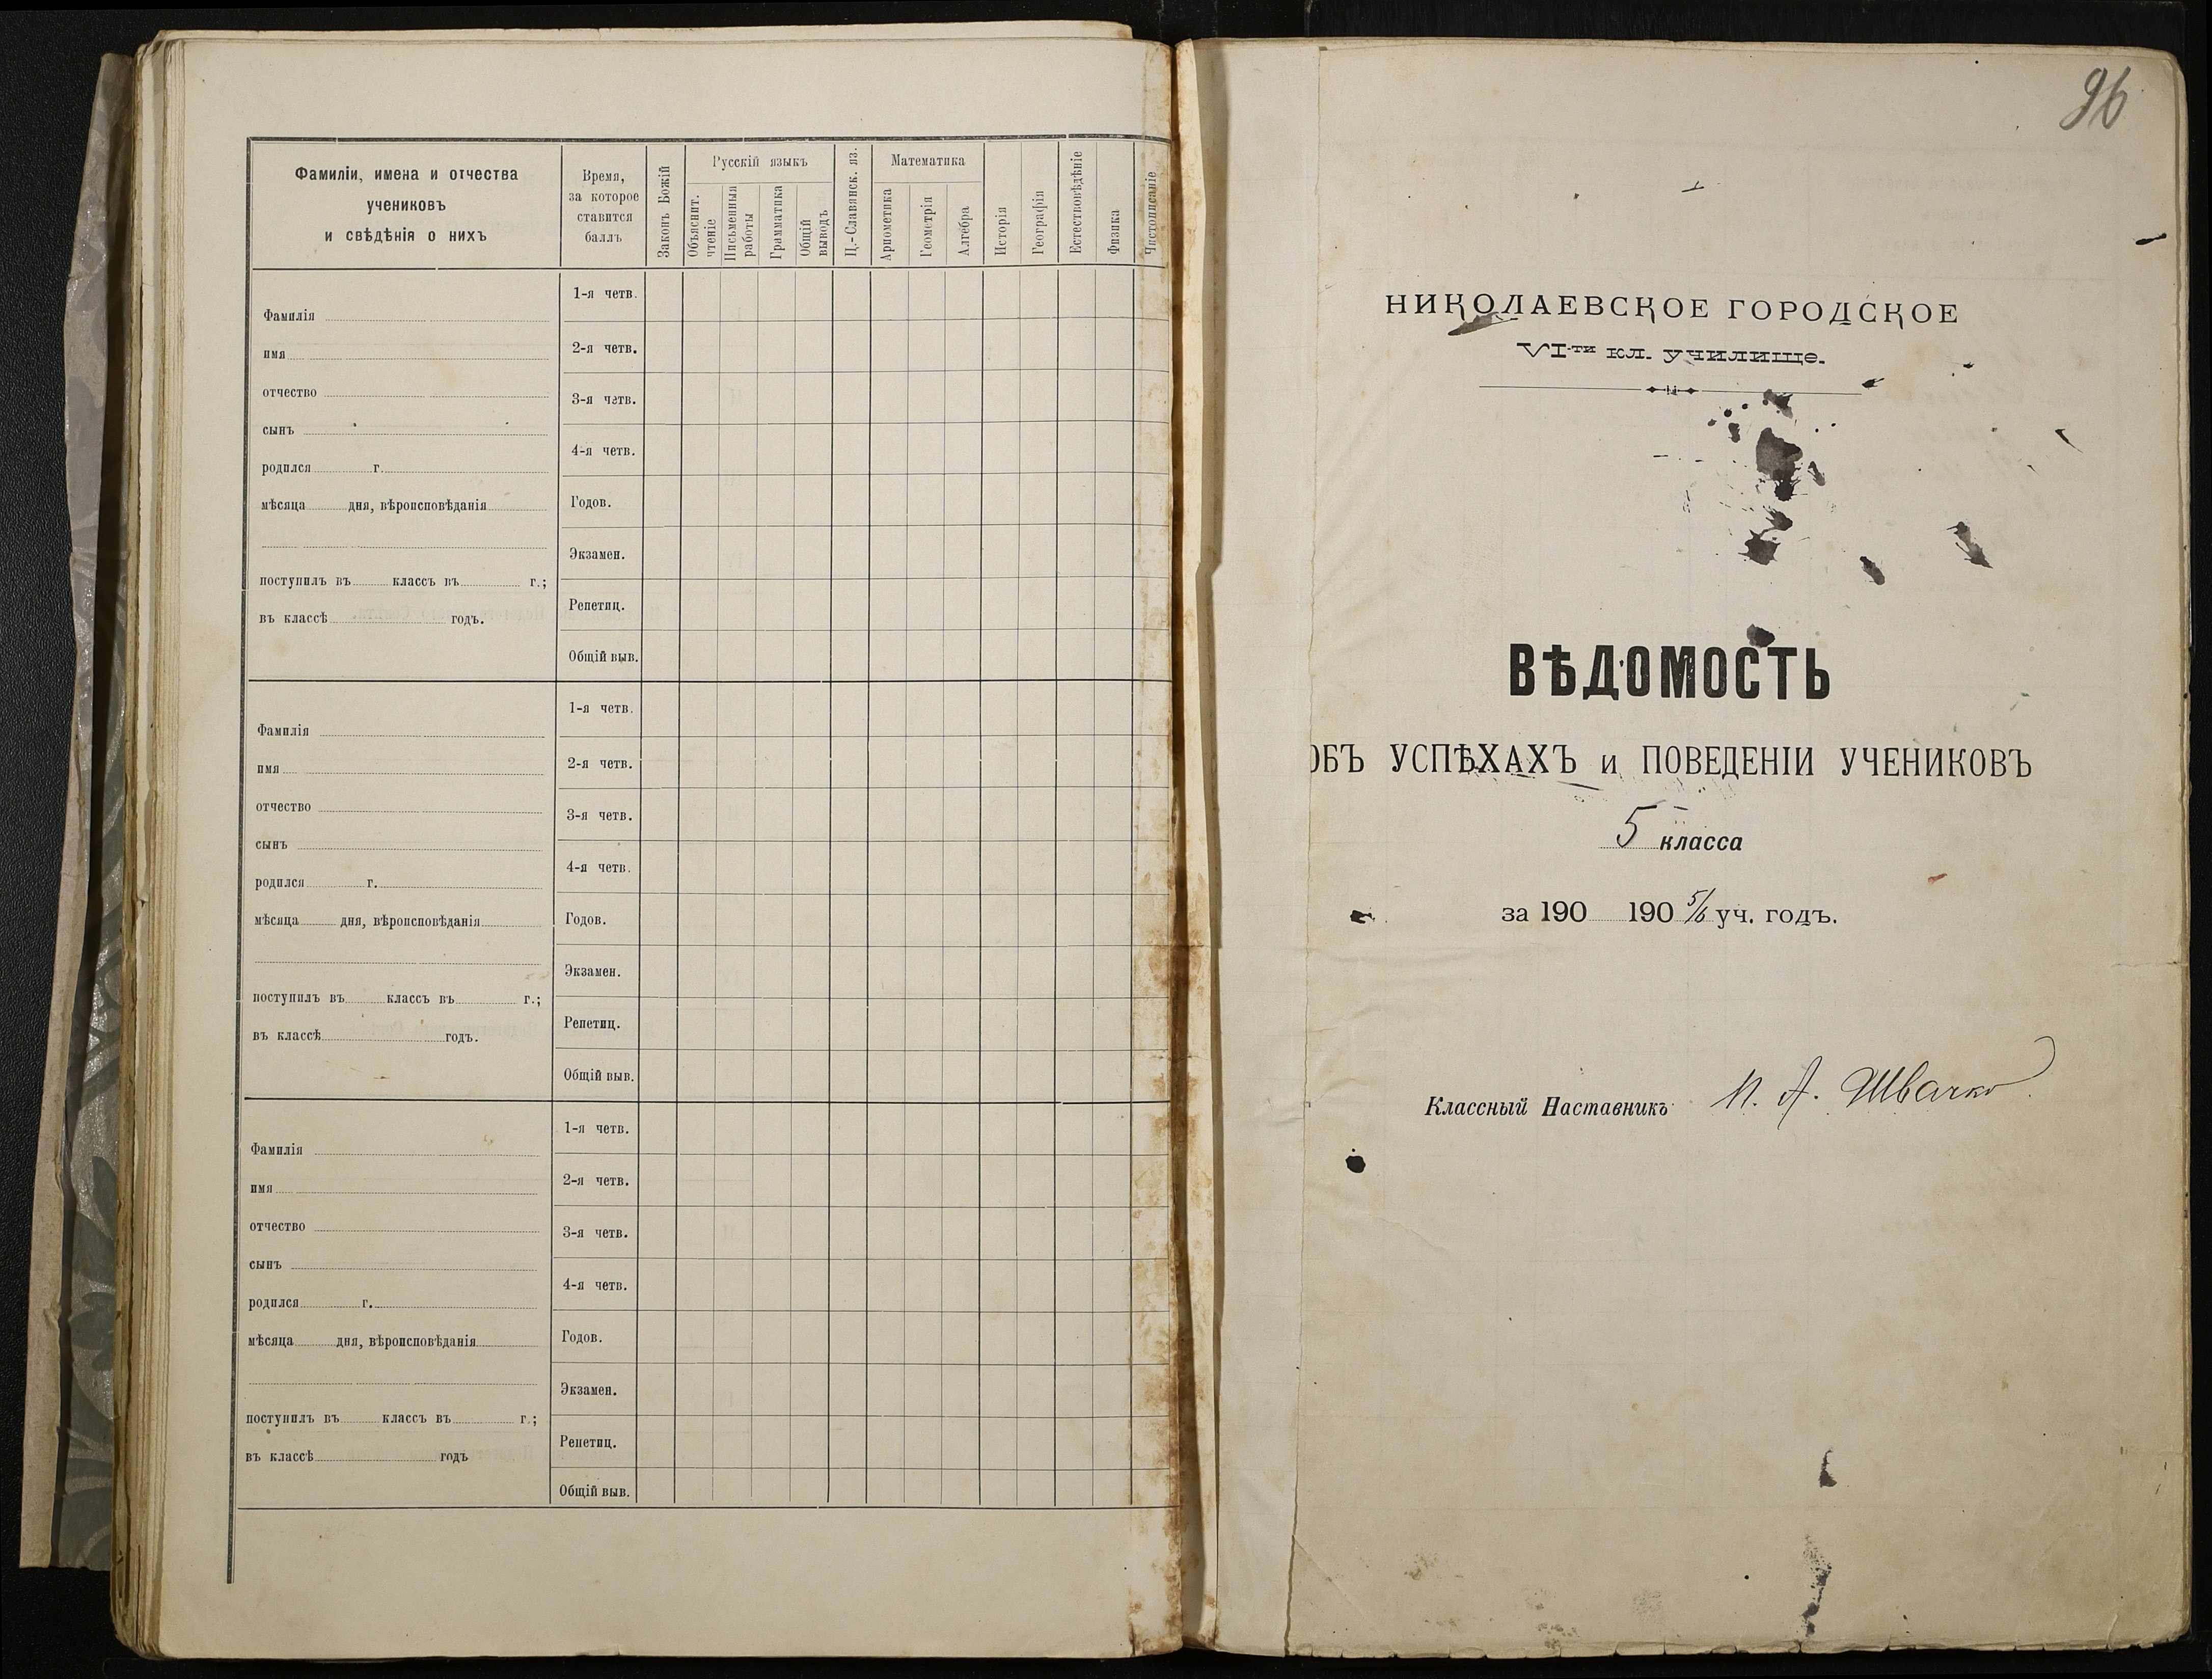 Фамиліи, имена и отчества
учениковъ
и свѣдѣнія о нихъ
Время,
за которое
ставится
баллъ
Законъ Божій
Русскій языкъ
Объяснит.
чтеніе
Письменныя
работы
Грамматика
Общій
выводъ
Ц.-Славянск. яз.
Математика
Ариѳметика
Геометрія
Алгебра
Исторія
Географія
Естествовѣдѣніе
Физика
Чистописаніе
Фамилія
имя
отчество
сынъ
родился г.
мѣсяца дня, вѣроисповѣданія
поступилъ въ классъ въ г.;
въ классѣ годъ.
1-я четв.
2-я четв.
3-я четв.
4-я четв.
Годов.
Экзамен.
Репетиц.
Общій выв.
Фамилія
имя
отчество
сынъ
родился г.
мѣсяца дня, вѣроисповѣданія
поступилъ въ классъ въ г.;
въ классѣ годъ.
1-я четв.
2-я четв.
3-я четв.
4-я четв.
Годов.
Экзамен.
Репетиц.
Общій выв.
Фамилія
имя
отчество
сынъ
родился г.
мѣсяца дня, вѣроисповѣданія
поступилъ въ классъ въ г.;
въ классѣ годъ
1-я четв.
2-я четв.
3-я четв.
4-я четв.
Годов.
Экзамен.
Репетиц.
Общій выв.
96
НИКОЛАЕВСКОЕ ГОРОДСКОЕ
VI-ти кл. училище.
ВѢДОМОСТЬ
ОБЪ УСПѢХАХЪ и ПОВЕДЕНІИ УЧЕНИКОВЪ
5 класса
за 190 190 5/6 уч. годъ.
Классный Наставникъ П. А. Швачко